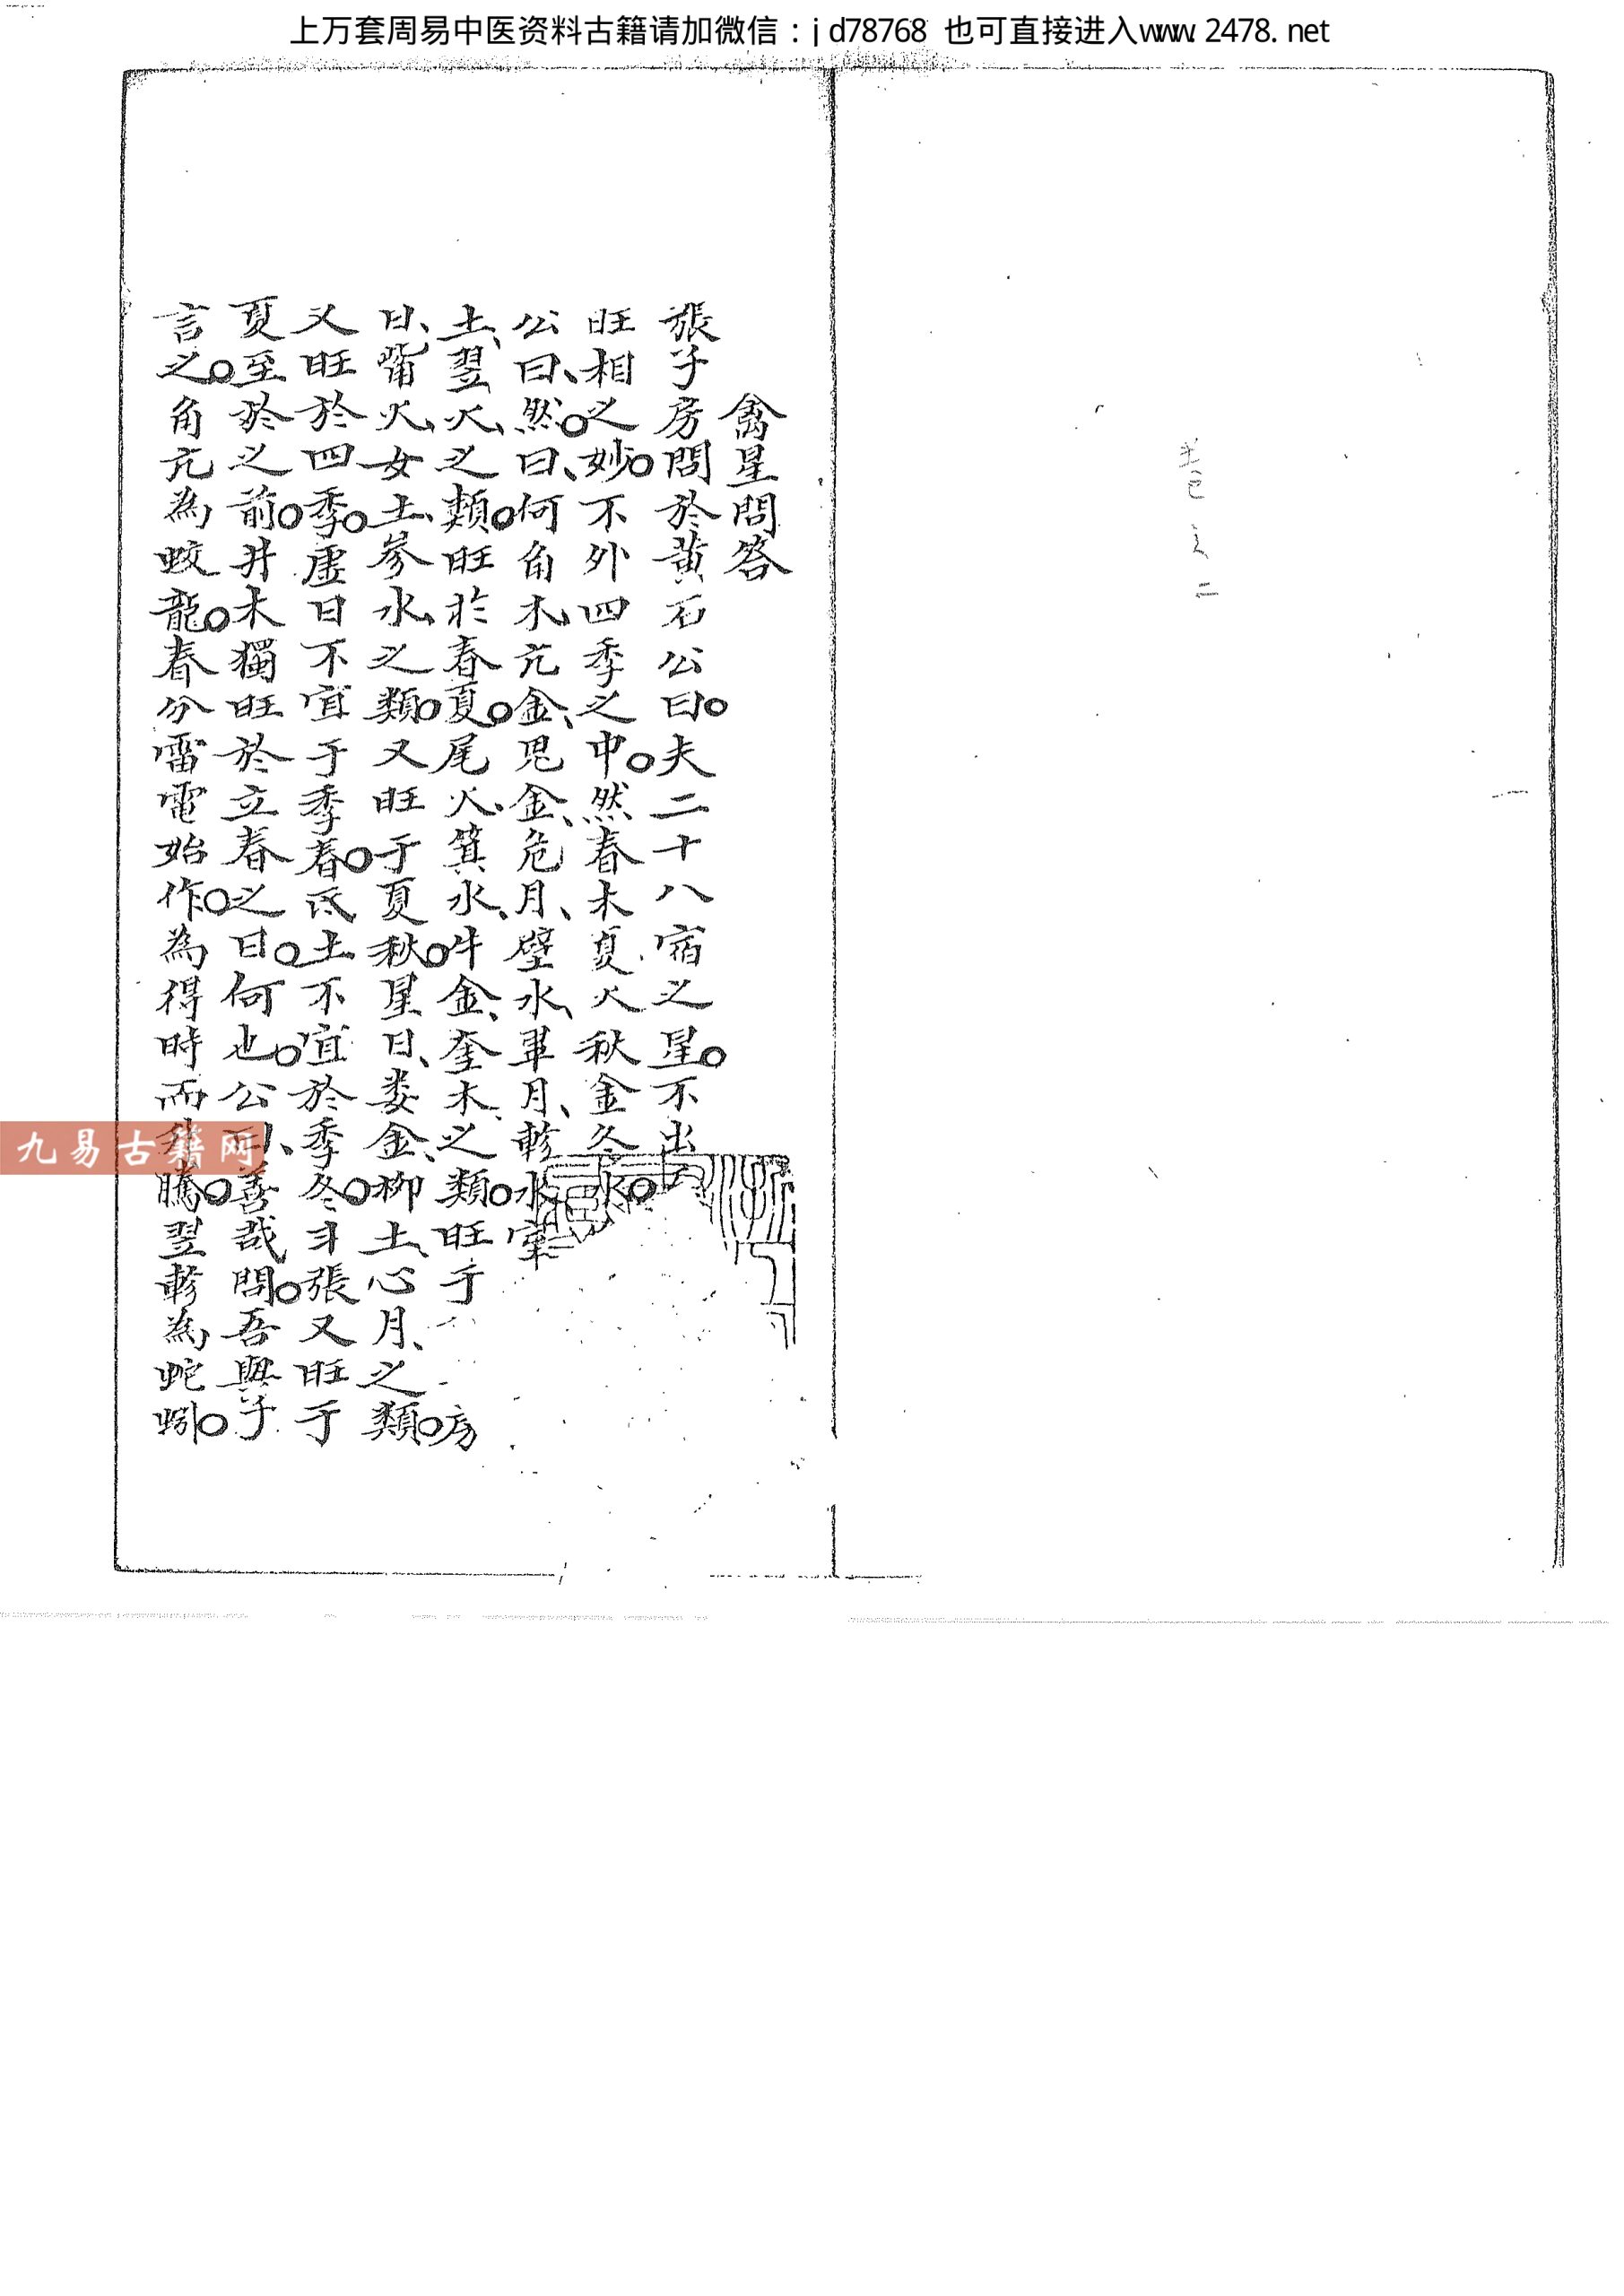 上万套周易中医资料古籍请加微信：jd78768 也可直接进入www.2478.net
卷之二
禽星問答
張子房問於黃石公曰。夫二十八宿之星。不出
旺相之妙。不外四季之中。然春木夏火秋金冬水。
公曰、然。曰、何角木、亢金、鬼金、危月、壁水、畢月、軫水、室
土、翌火、之類。旺於春夏。尾火、箕水、牛金、奎木、之類。旺于房
日、觜火、女土、參水、之類。又旺于夏秋。星日、娄金、柳土、心月、之類。
又旺於四季。虛日不宜于季春。氐土不宜於季冬。斗張又旺于
夏至於之前。井木獨旺於立春之日。何也。公曰、善哉問。吾與子
言之。角亢為蛟龍。春分雷電始作。為得時而騰。翌軫為蛇蚓。
九易古籍网